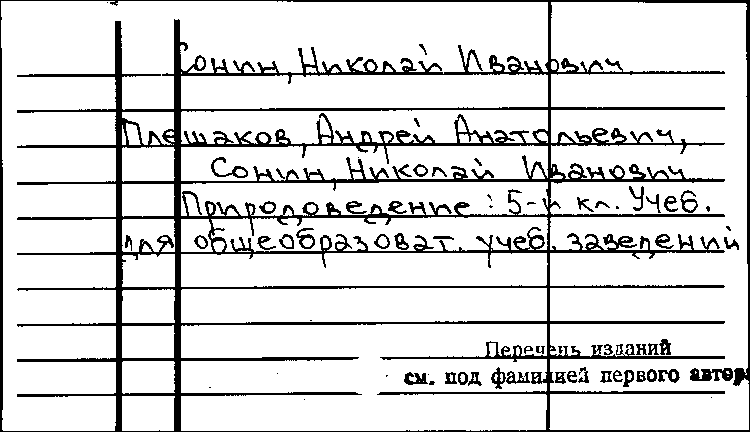 Сонин, Николай Иванович
Плешаков, Андрей Анатольевич,
Сонин, Николай Иванович
Природоведение: 5-й кл. Учеб.
для общеобразоват. учеб. заведений
Перечень изданий
см. под фамилией первого автора